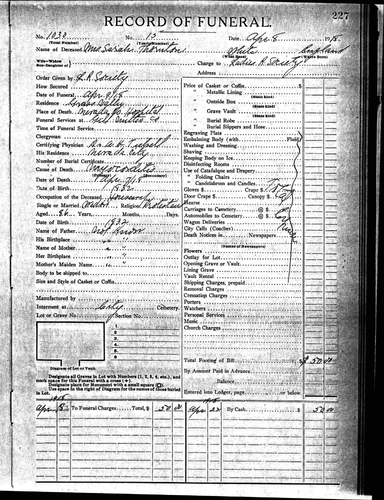 227
RECORD OF FUNERAL.
No. 1030 No. 15 Date Apr 8 1915
(Total Number) (Yearly Number)
Name of Deceased Mrs Sarah Thornton White England
(What Race) (Where Born)
Wife—Widow
Son—Daughter of
Charge to Ladies R Society
Address
Order Given by L R Society
How Secured
Date of Funeral Apr 9/15
Residence Grass Valley
Place of Death
Funeral Services at
Time of Funeral Service
Clergyman
Certifying Physician
His Residence
Number of Burial Certificate
Cause of Death Myocarditis
Date of Death Apr 7/15
Date of Birth 1832
Occupation of the Deceased Housewife
Single or Married Widow Religion Protestant
Aged 86 Years, Months, Days.
Date of Birth 1832
Name of Father Not Known
His Birthplace "
Name of Mother "
Her Birthplace "
Mother's Maiden Name "
Body to be shipped to
Size and Style of Casket or Coffin
Manufactured by
Interment at City Cemetery.
Lot or Grave No. Section No.
1
2
3
4
5
6
Diagram of Lot or Vault
Designate all Graves in Lot with Numbers (1, 2, 3, 4, etc.), and mark space for this Funeral with a cross (+).
Designate place for Monument with a small square (□).
Use space in the right of Diagram for the names of those buried in Lot.
Price of Casket or Coffin
" Metallic Lining
(State Kind)
" Outside Box
(State Kind)
" Grave Vault
(State Kind)
" Burial Robe
(State Kind)
" Burial Slippers and Hose
Engraving Plate
Embalming Body (with Fluid)
Washing and Dressing
Shaving
Keeping Body on Ice
Disinfecting Rooms
Use of Catafalque and Drapery
" Folding Chairs
" Candelabrum and Candles
Gloves $ Crape $
Door Crape $ Canopy $
Hearse
Carriages to Cemetery @ $
Automobiles to Cemetery @ $
Wagon Deliveries
City Calls (Coaches)
Death Notices in Newspapers
(Names of Newspapers)
Flowers
Outlay for Lot
Opening Grave or Vault
Lining Grave
Vault Rental
Shipping Charges, prepaid
Removal Charges
Cremation Charges
Porters
Watchers
Personal Services
Music
Church Charges
Total Footing of Bill $ 50 00
By Amount Paid in Advance
Balance
Entered into Ledger, page or below
1915
Apr 8 To Funeral Charges, Total, $ 50 00
1915
Apr 22 By Cash $ 50 00